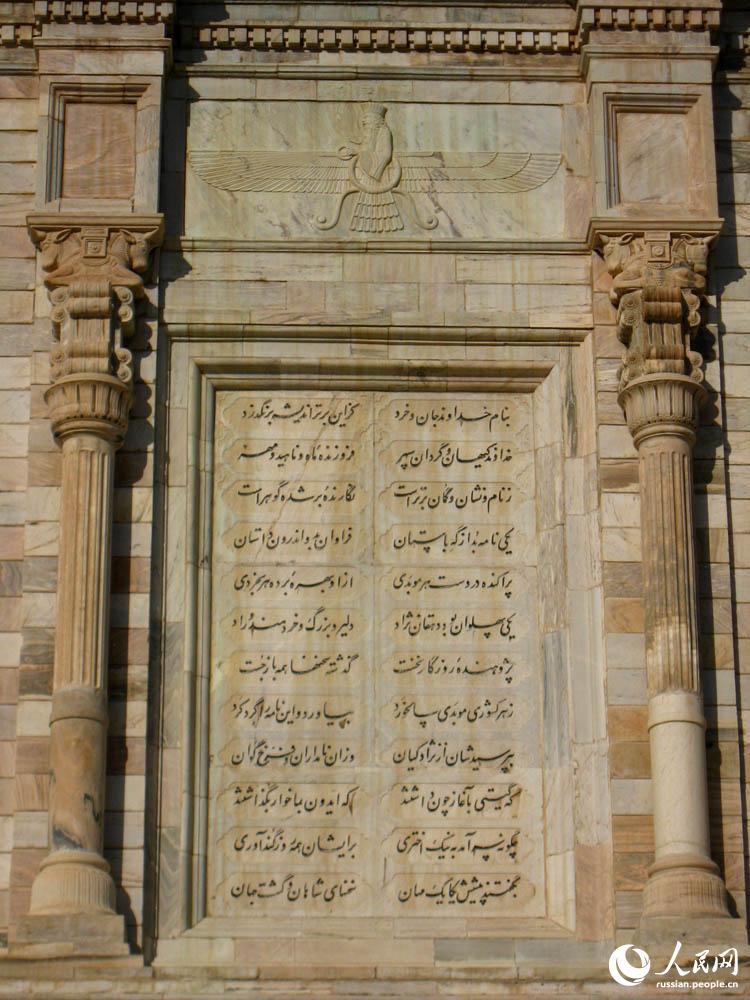 بنام خداوند جان و خرد کزین برتر اندیشه برنگذرد
خداوند کیهان و گردان سپهر فروزنده ماه و ناهید و مهر
ز نام و نشان و گمان برتر است نگارندهٔ بر شده گوهر است
یکی نامه بد از گه باستان فراوان بدو اندرون داستان
پراکنده در دست هر موبدی ازو بهرهٔ برده هر بخردی
یکی پهلوان بود دهقان نژاد دلیر و بزرگ و خردمند و راد
پژوهندهٔ روزگار نخست گذشته سخنها همه باز جست
ز هر کشوری موبدی سالخورد بیاورد و این نامه را گرد کرد
بپرسیدشان از نژاد کیان وزان نامداران و فرخ گوان
که گیتی بآغاز چون داشتند که ایدون بما خوار بگذاشتند
چگونه سر آمد به نیک اختری برایشان همه روز گندآوری
بگفتند پیشش یکایک مهان سخنهای شاهان و گشت جهان
人民网
russian.people.cn